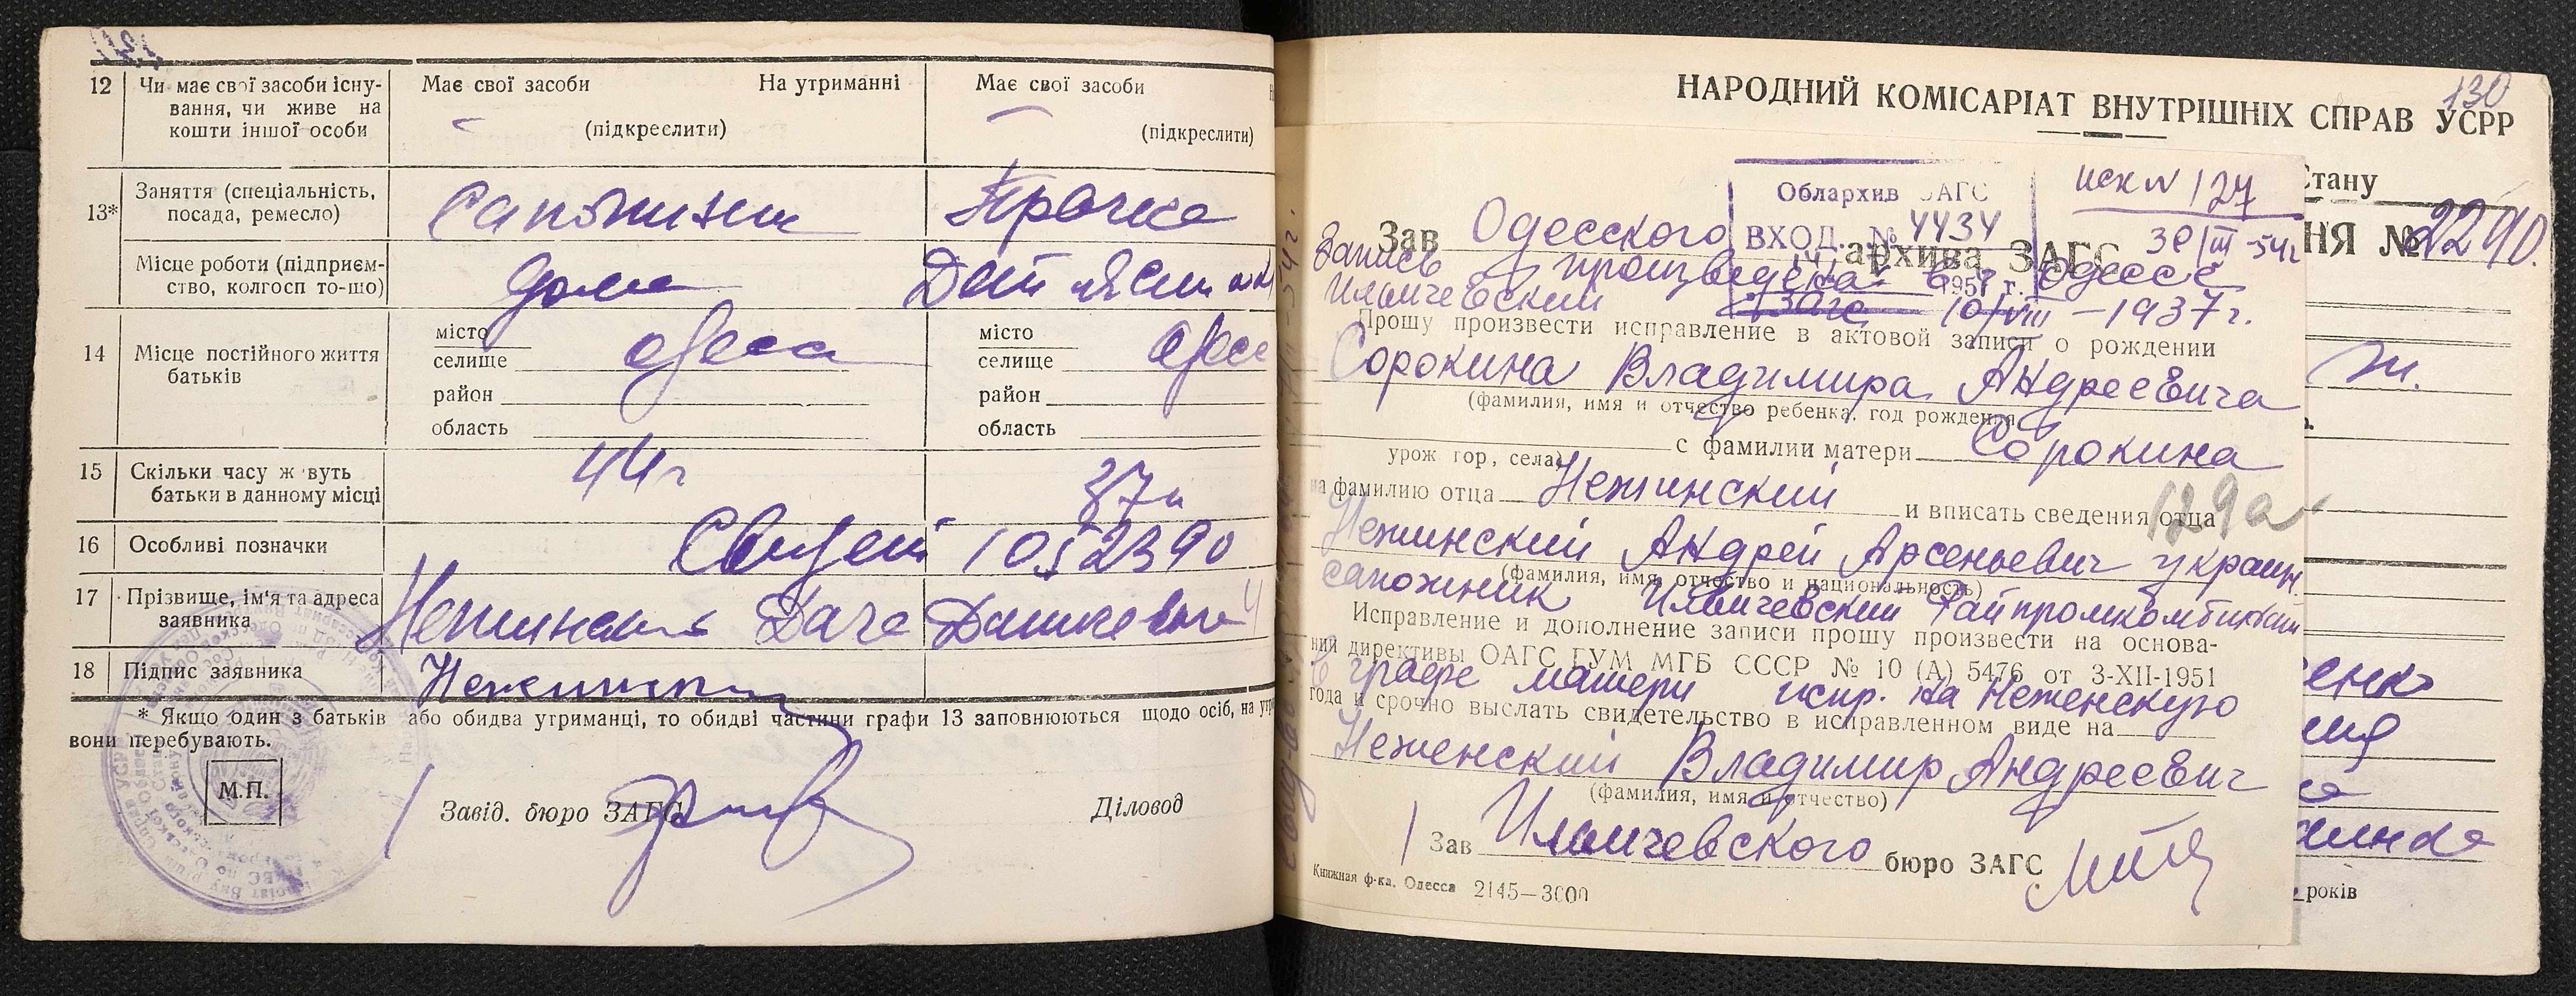 12 Чи має свої засоби існування, чи живе на кошти іншої особи
Має свої засоби На утриманні Має свої засоби
(підкреслити) (підкреслити)
13* Заняття (спеціальність, посада, ремесло)
Сапожник Прачка
Місце роботи (підприємство, колгосп то-що)
дома Дет ясли
14 Місце постійного життя батьків
місто місто
селище Одеса селище Одесс
район район
область область
15 Скільки часу ж вуть батьки в данному місці
44г 37г
16 Особливі позначки
1052390
17 Прізвище, ім'я та адреса заявника
Дача
18 Підпис заявника
* Якщо один з батьків або обидва утриманці, то обидві частини графи 13 заповнюються щодо осіб, на
вони перебувають.
М.П.
Завід. бюро ЗАГС Діловод
130
НАРОДНИЙ КОМІСАРІАТ ВНУТРІШНІХ СПРАВ УСРР
Стану
НЯ № 2290.
Облархив ЗАГС
ВХОД. № 4434
195 г.
иск N 127
30/III-54г
Зав Одесского архива ЗАГС
Запись произведена в г. Одессе
Ильичевский загс 10/VIII-1937г.
Прошу произвести исправление в актовой записи о рождении
Сорокина Владимира Андреевича
(фамилия, имя и отчество ребенка, год рождения
урож гор., села) с фамилии матери Сорокина
на фамилию отца Нежинский и вписать сведения отца
129а
Нежинский Андрей Арсеньевич украин.
(фамилия, имя, отчество и национальность)
сапожник Ильичевский Райпромкомбинат
Исправление и дополнение записи прошу произвести на основа-
нии директивы ОАГС ГУМ МГБ СССР № 10 (А) 5476 от 3-XII-1951
в графе матери испр. на Неженскую
года и срочно выслать свидетельство в исправленном виде на
Неженский Владимир Андреевич
(фамилия, имя и отчество)
Зав Ильичевского бюро ЗАГС
Книжная ф-ка. Одесса 2145—3000
років